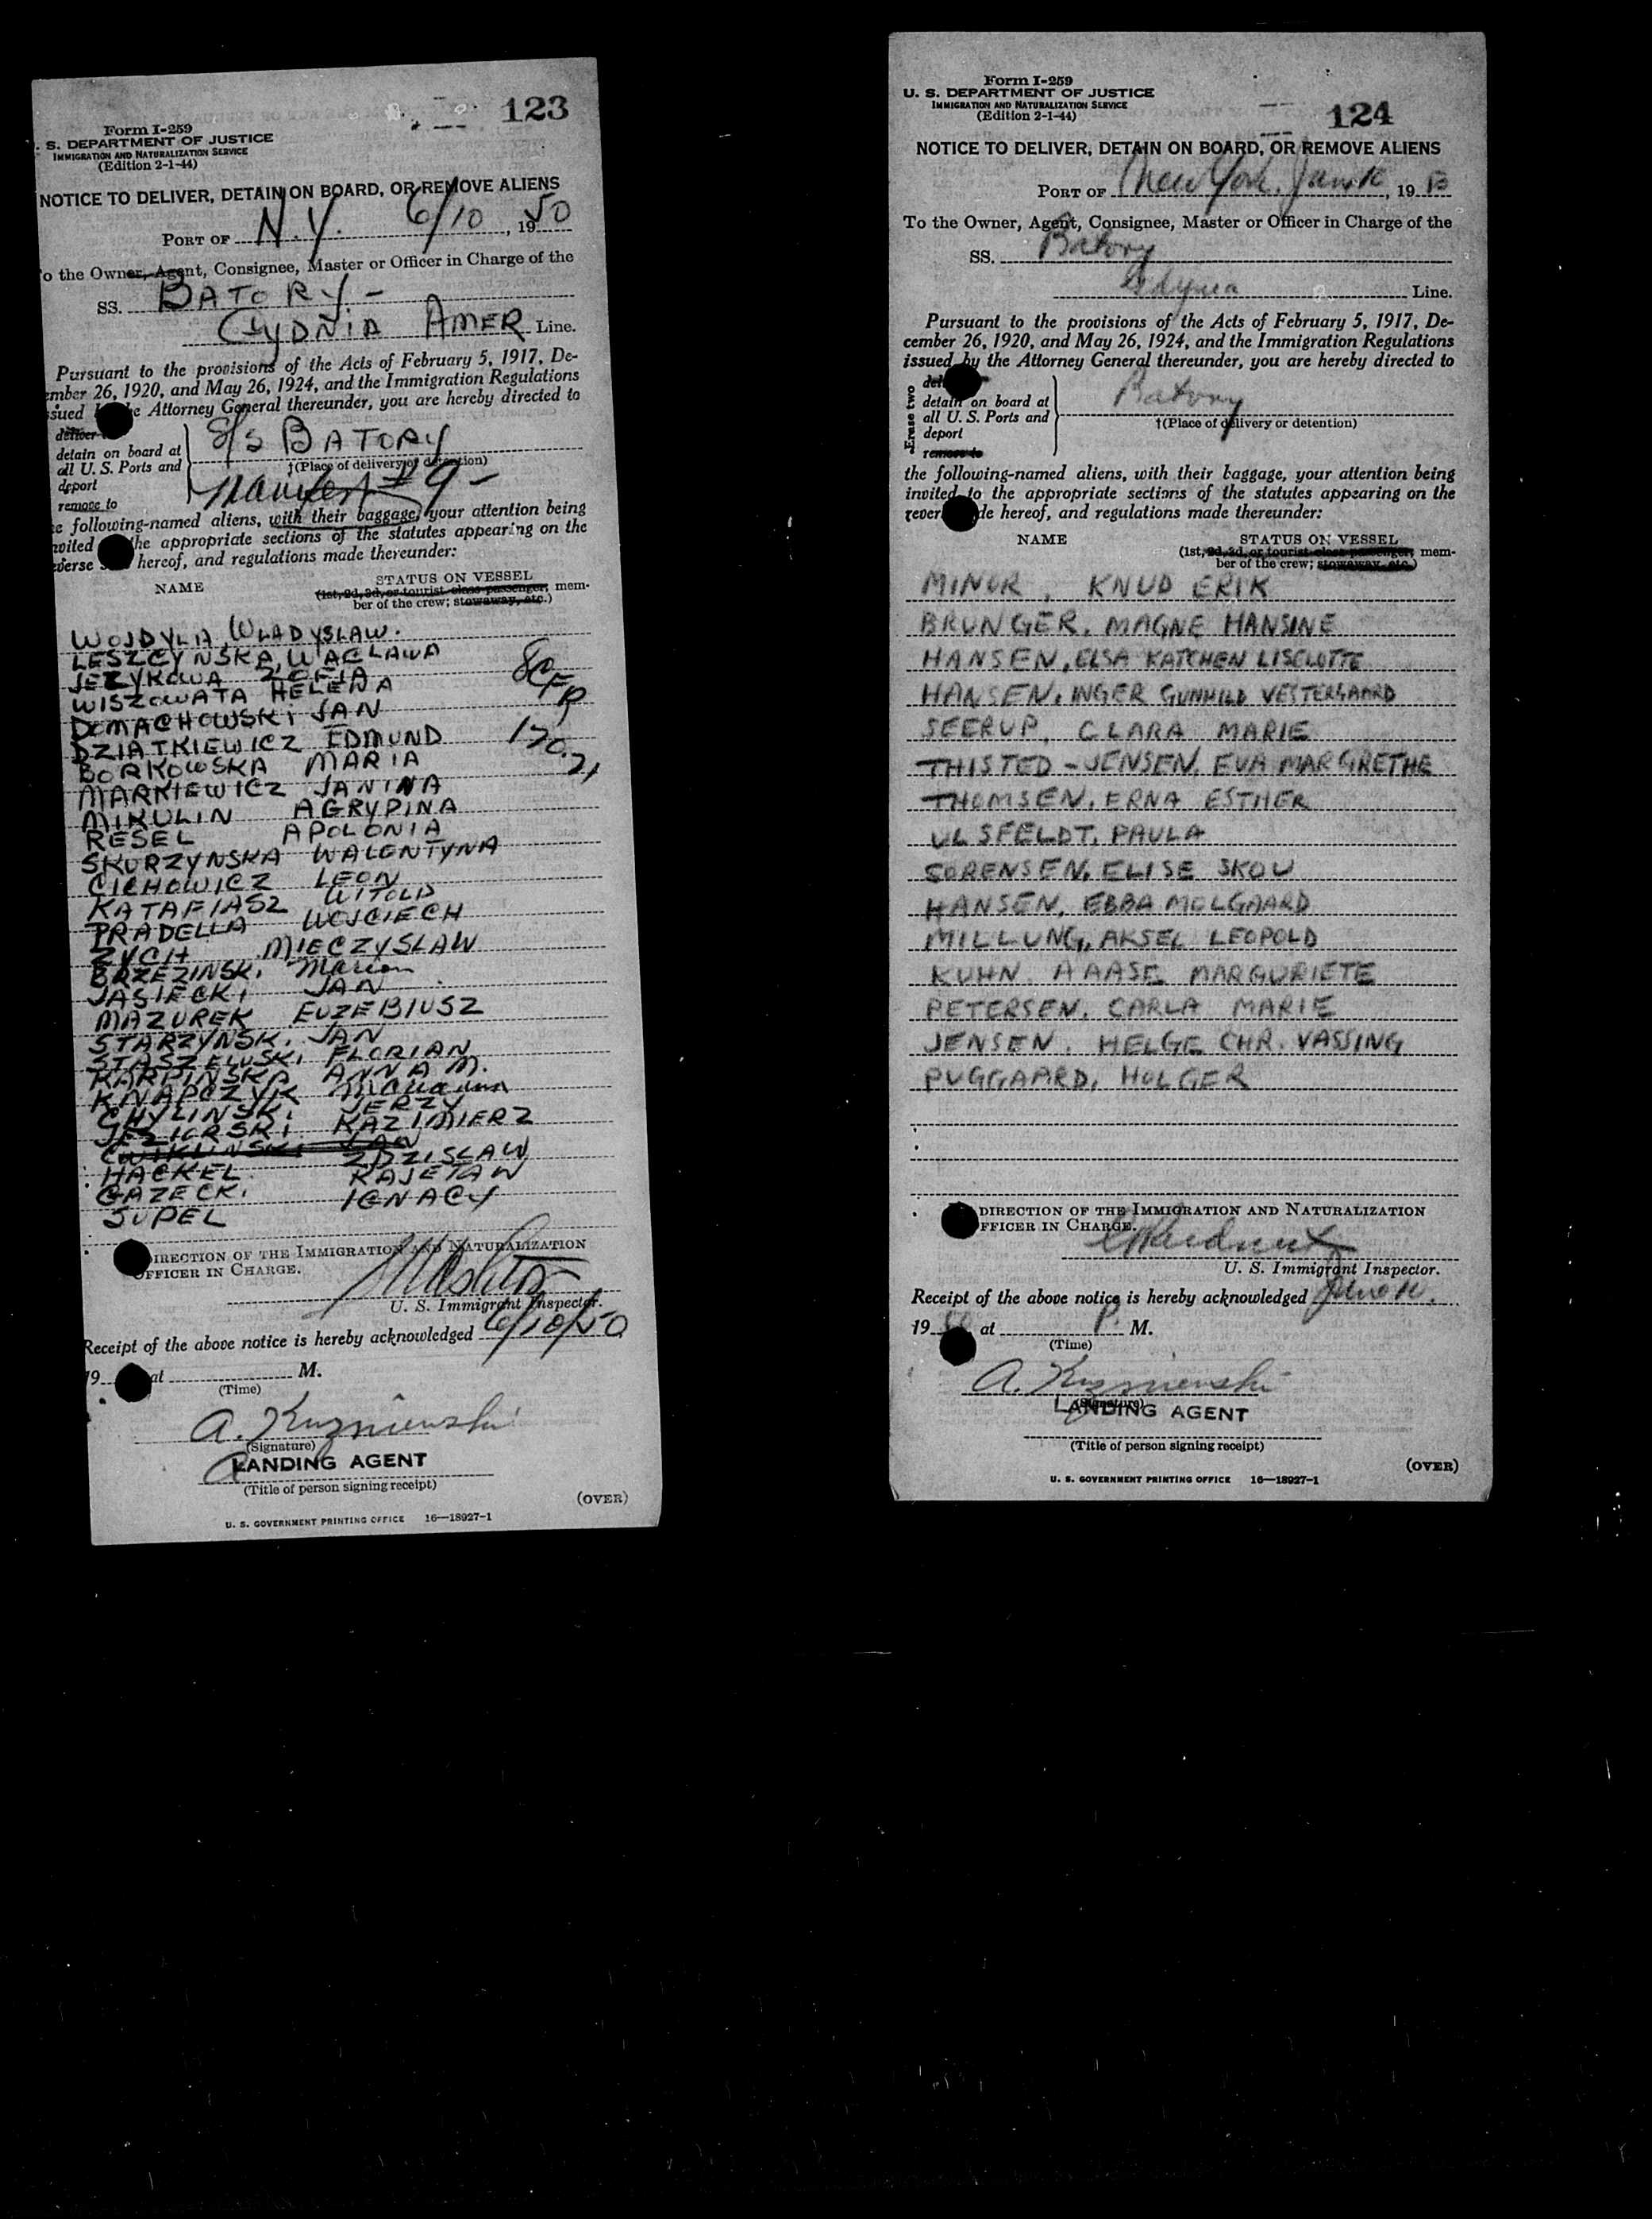 123
Form I-259
. S. DEPARTMENT OF JUSTICE
IMMIGRATION AND NATURALIZATION SERVICE
(Edition 2-1-44)
NOTICE TO DELIVER, DETAIN ON BOARD, OR REMOVE ALIENS
PORT OF N.Y. 6/10, 1950
o the Owner, Agent, Consignee, Master or Officer in Charge of the
SS. BATORY -
GYDNIA AMER Line.
Pursuant to the provisions of the Acts of February 5, 1917, De-
ember 26, 1920, and May 26, 1924, and the Immigration Regulations
ssued Attorney General thereunder, you are hereby directed to
deliver
detain on board at
all U. S. Ports and
deport
remove to
S/S BATORY
†(Place of delivery or detention)
Manifest #9 -
e following-named aliens, with their baggage, your attention being
nvited the appropriate sections of the statutes appearing on the
verse hereof, and regulations made thereunder:
NAME STATUS ON VESSEL
(1st, 2d, 3d, or tourist class passenger; mem-
ber of the crew; stowaway, etc.)
WOJDYLIA WLADYSLAW.
LESZCYNSKA, WACLAWA
JEZYKOWA ZOFIA
WISZOWATA HELENA
DOMACHOWSKI JAN
DZIATKIEWICZ EDMUND
BORKOWSKA MARIA
MARKIEWICZ JANINA
8CFR
170.21
MIKULIN AGRYPINA
RESEL APOLONIA
SKURZYNSKA WALENTYNA
CICHOWICZ LEON
KATAFIASZ WITOLD
PRADELLA WOJCIECH
ZYCH MIECZYSLAW
BRZEZINSKI Marion
JASIECKI JAN
MAZUREK EUZEBIUSZ
STARZYNSKI JAN
STASZEWSKI FLORIAN
KARPINSKA ANNA M.
KNAPCZYK
CHYLINSKI JERZY
JEZIORSKI KAZIMIERZ
CWIKLINSKI JAN
HACKEL ZDZISLAW
GAZECKI KAJETAN
SUPEL IGNACY
DIRECTION OF THE IMMIGRATION AND NATURALIZATION
OFFICER IN CHARGE.
U. S. Immigrant Inspector.
Receipt of the above notice is hereby acknowledged 6/10/50
19 at M.
(Time)
A. Kuzniewski
(Signature)
LANDING AGENT
(Title of person signing receipt)
(OVER)
U. S. GOVERNMENT PRINTING OFFICE 16—18927-1
Form I-259
U. S. DEPARTMENT OF JUSTICE
IMMIGRATION AND NATURALIZATION SERVICE
(Edition 2-1-44)
124
NOTICE TO DELIVER, DETAIN ON BOARD, OR REMOVE ALIENS
PORT OF New York, June 10, 19
To the Owner, Agent, Consignee, Master or Officer in Charge of the
SS. Batory
Gdynia Line.
Pursuant to the provisions of the Acts of February 5, 1917, De-
cember 26, 1920, and May 26, 1924, and the Immigration Regulations
issued by the Attorney General thereunder, you are hereby directed to
Erase two
detain on board at
all U. S. Ports and
deport
remove to
Batory
†(Place of delivery or detention)
the following-named aliens, with their baggage, your attention being
invited to the appropriate sections of the statutes appearing on the
reverse side hereof, and regulations made thereunder:
NAME STATUS ON VESSEL
(1st, 2d, 3d, or tourist class passenger; mem-
ber of the crew; stowaway, etc.)
MINOR, KNUD ERIK
BRUNGER, MAGNE HANSINE
HANSEN, ELSA KATCHEN LISELOTTE
HANSEN, INGER GUNHILD VESTERGAARD
SEERUP, CLARA MARIE
THISTED - JENSEN, EVA MARGRETHE
THOMSEN, ERNA ESTHER
ULSFELDT, PAULA
SORENSEN, ELISE SKOU
HANSEN, EBBA MOLGAARD
MILLUNG, AKSEL LEOPOLD
KUHN. AAASE MARGURIETE
PETERSEN, CARLA MARIE
JENSEN. HELGE CHR. VASSING
PUGGAARD, HOLGER
DIRECTION OF THE IMMIGRATION AND NATURALIZATION
OFFICER IN CHARGE.
U. S. Immigrant Inspector.
Receipt of the above notice is hereby acknowledged June 10,
19 at P. M.
(Time)
A. Kuzniewski
(Signature)
LANDING AGENT
(Title of person signing receipt)
(OVER)
U. S. GOVERNMENT PRINTING OFFICE 16—18927-1